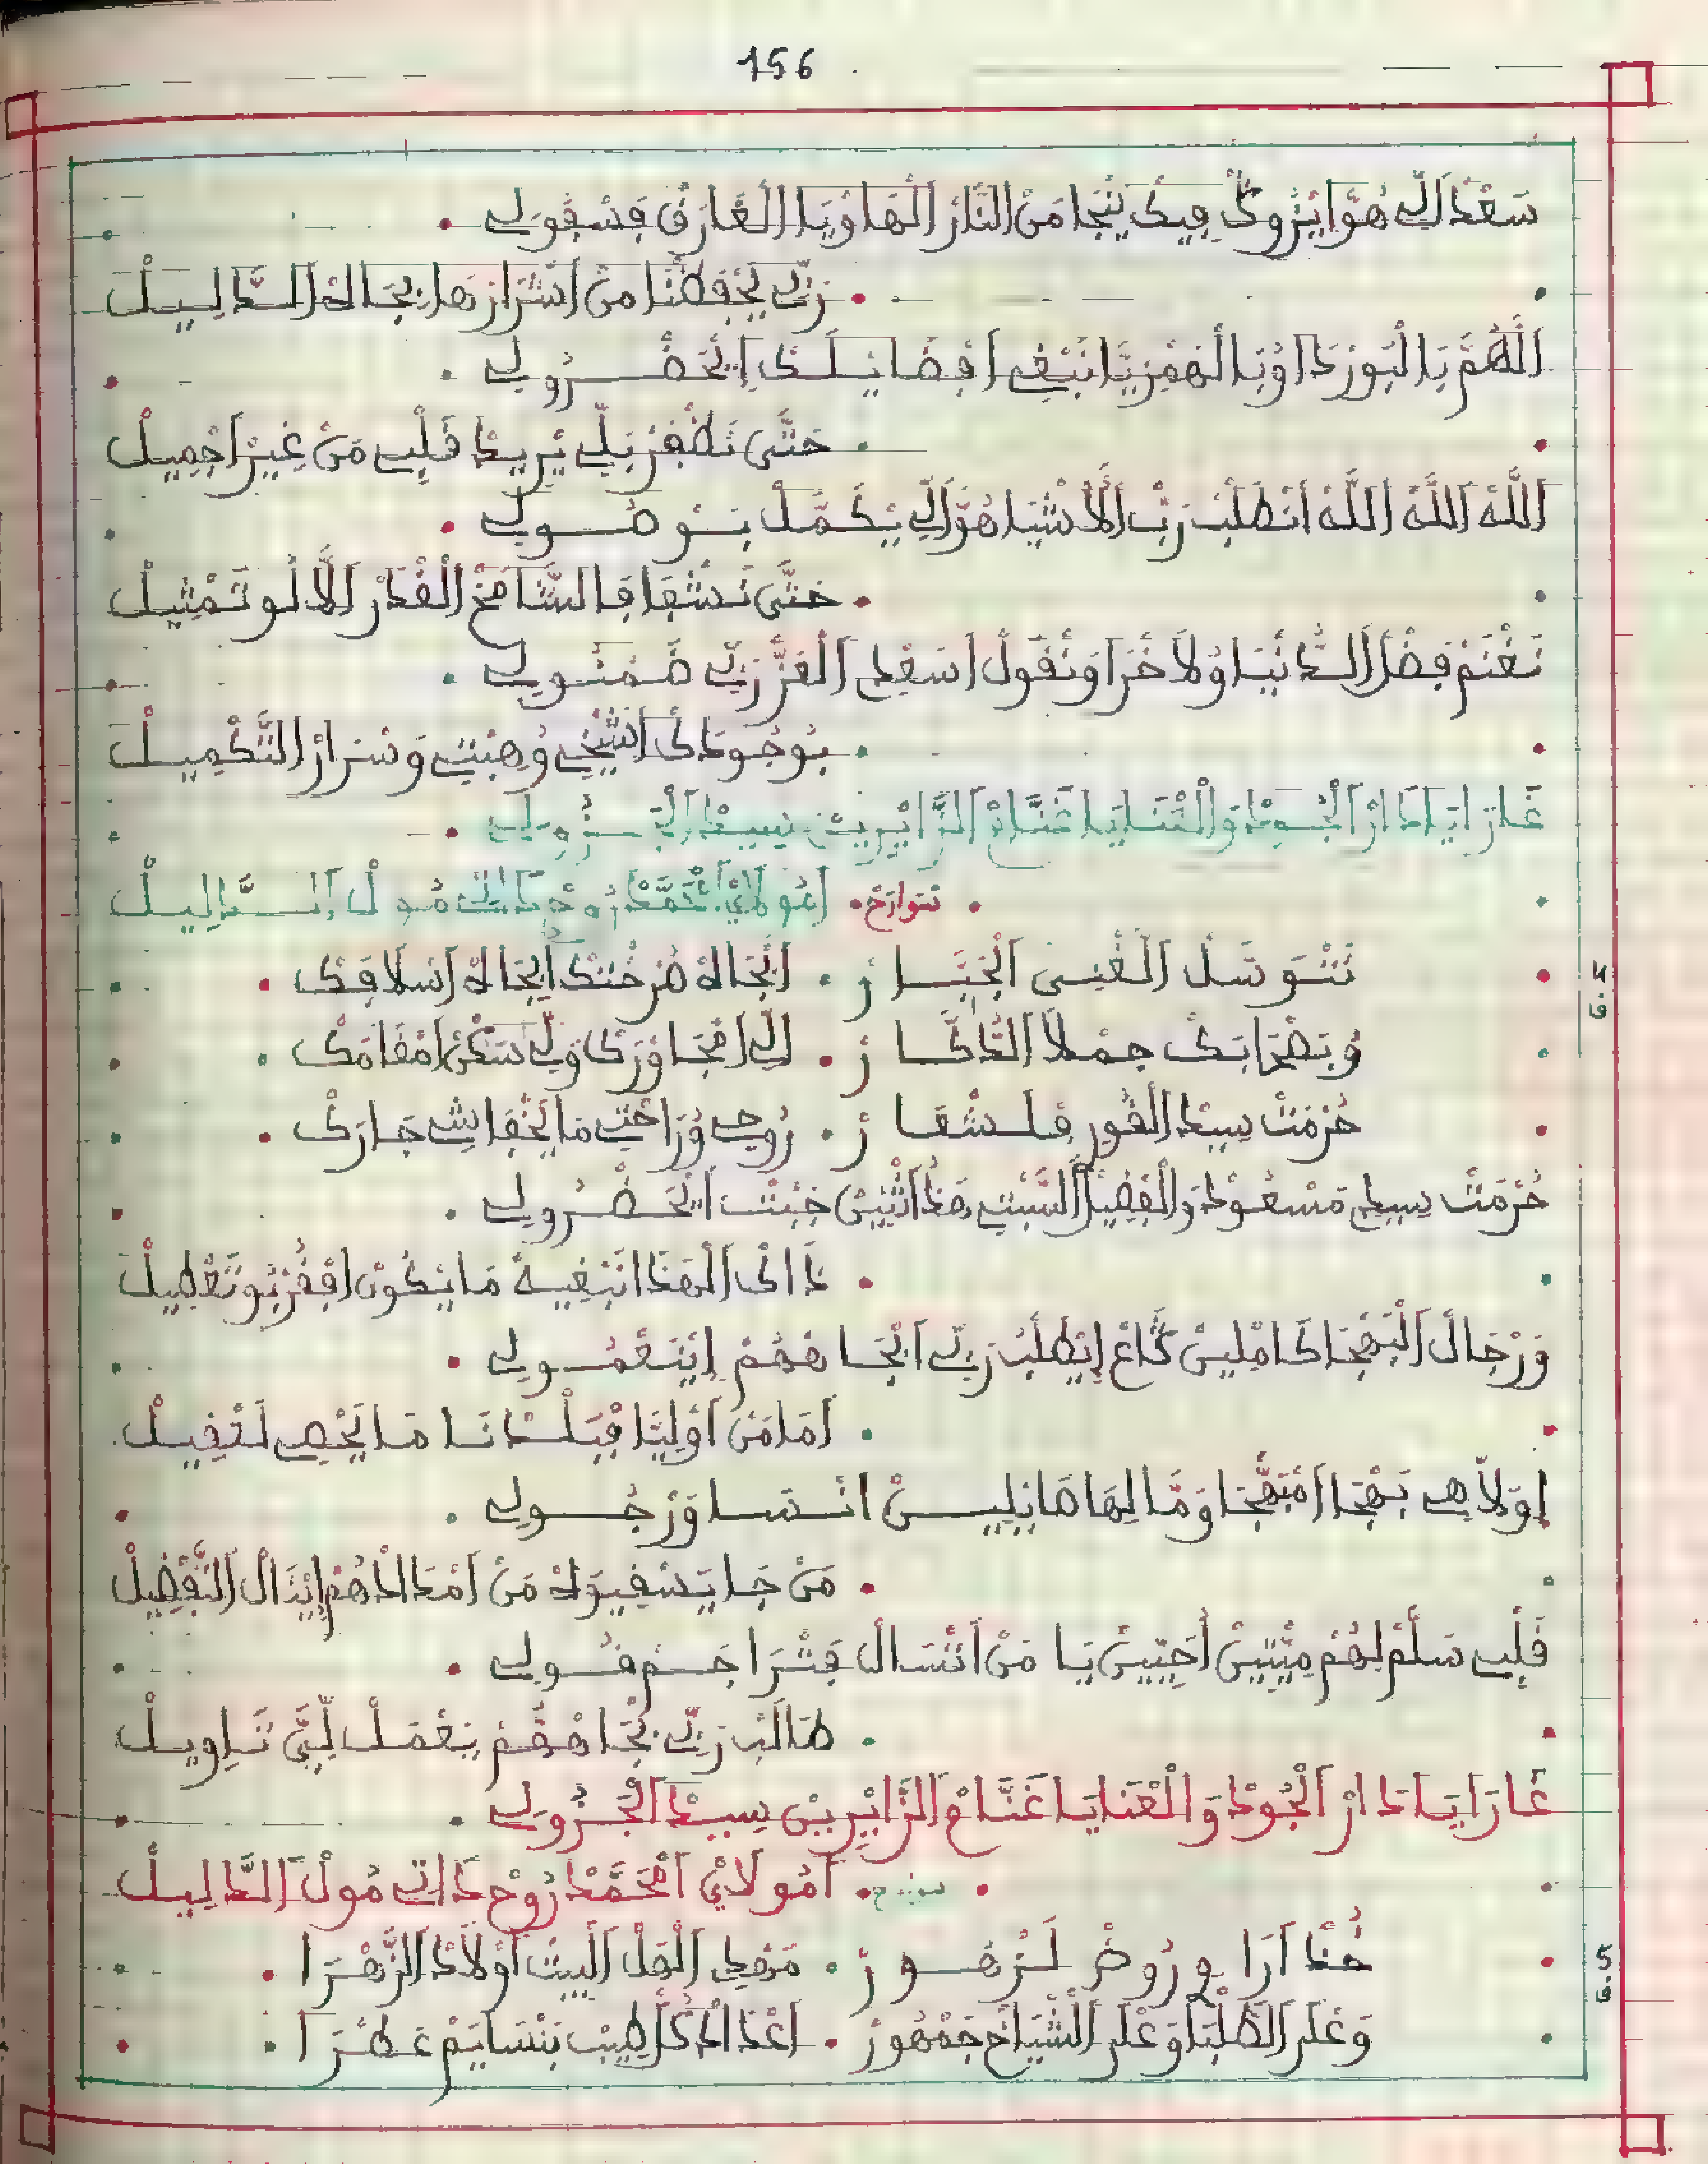 156
سَعْدْ اَلِّي هُوَّا يْزُورَكْ فِيكْ يَنْجَا مَنْ النَّارْ الْهَاوْيَا الْعَارَفْ فَسْقُولِي
رَبِّي يَحْفَظْنَا مَنْ اَشْرَارْهَا بْجَاهْ الدَّالِيلْ
اَللَّهُمَّ يَا الْبُورْدَا وْيَا الْهَمْزِيَّا نَبْغِي اَفْضَايْلَكْ اِيْحَضْرُولِي
حَتَّى نَظْفَرْ بَلِّي يْرِيدْ قَلْبِي مَنْ غِيرْ اجْمِيلْ
اَللَّهْ اَللَّهْ اَللَّهْ اَنْطَلْبْ رَبّْ اَلَاشْيَا هُوَّ اَلِّي يْكَمَّلْ بُوصُولِي
حَتَّى نَسْقَا فَالشَّامَخْ الْقْدَارْ اَلَّا لُو تَمْثِيلْ
نَغْنَمْ فَضْلْ الدَّنْيَا وُلَاخْرَا وَنْقُولْ اَسَعْدِي اَلْعَزّْ رَبِّي ضَمْنُولِي
بُوجُودَكْ اَشِّيخِي وُهِبْتِي وَسْرَارْ التَّكْمِيلْ
غَارَا يَا دَارْ اَلْجُودْ وَالْعْنَايَا غَنَّامْ الزَّايْرِيينْ سِيدْ اَلْجَزُولِي
تتوارخ اَمُولَايْ اَمْحَمَّدْ رُوحْ دَاتِي مُولْ اَلدَّالِيلْ
4 ف
نَتْوَسَّلْ اَلْغْنِي اَلْجَبَّارْ اَبْجَاهْ حُرْمْتَكْ اَبْجَاهْ اَسْلَافَكْ
وُبَصْحَابَكْ جمْلَا الدَّكَّارْ اَلِّي اَمْجَاوْرَكْ وَلِّي سَكْنْ اَمْقَامَكْ
حُرْمَتْ سِيدْ الْقُورْ فَلَسْقَارْ رُوحِي وْرَاحْتِي مَا يَخْفَاشِي جَارَكْ
حُرْمَتْ سِيدِي مَسْعُودْ وَالْفْضِيلْ السَّبْتِي هَدْ اَثْنِينْ حَبِّيتْ اَيْحَضْرُولِي
دَاكْ اَلْهَدَا نَبْغِيهْ مَا يْكُونْ اَفْقُرْبُو تَعْطِيلْ
وَرْجَالْ اَلْبَهْجَا كَامْلِينْ گاعْ اِيْطَلْبْ رَبِّي اَبْجَاهْهُمْ اِيْنَعْمُولِي
اَمَا مَنْ اَوْلِيَّا فْبَلْدَانَا مَا يَحْصِي لَتْقِيلْ
اِوَلَّا هِي بَهْجَا اَمْبَهْجَا وَمَّالِيهَا هَايْلِيينْ اَنْسَا وَرْجُولِي
مَنْ جَا يَسْقِيوَهْ مَنْ اَمْدَادْهُمْ اِيْنَالْ التَّفْضِيلْ
قَلْبِي سَلَّمْ لِيهُمْ مِيّْتِينْ اَحَيِّينْ يَا مَنْ اَتْسَالْ فَتْرَاجَمْ قُولِي
طَالَبْ رَبِّي بْجَاهْهُمْ يَعْمَلْ لِيَّ تَاوِيلْ
غَارَا يَا دَارْ اَلْجُودْ وَالْعْنَايَا غَنَّامْ الزَّايْرِيينْ سِيدْ اَلْجَزُولِي
اَمُولَايْ اَمْحَمَّدْ رُوحْ دَاتِي مُولْ اَلدَّالِيلْ
5 ف
خُدْ اَرَاوِي رُوضْ لَزْهُورْ مَهْدِي اَلْهَلْ اَلْبِيتْ اَوْلَادْ الزَّهْرَا
وَعْلَى الطَّلْبَا وَعْلَى اَلْشْيَاخْ جَمْهُورْ اَعْدَادْ كُلّْ طِيبْ بَنْسَايَمْ عَطْرَا